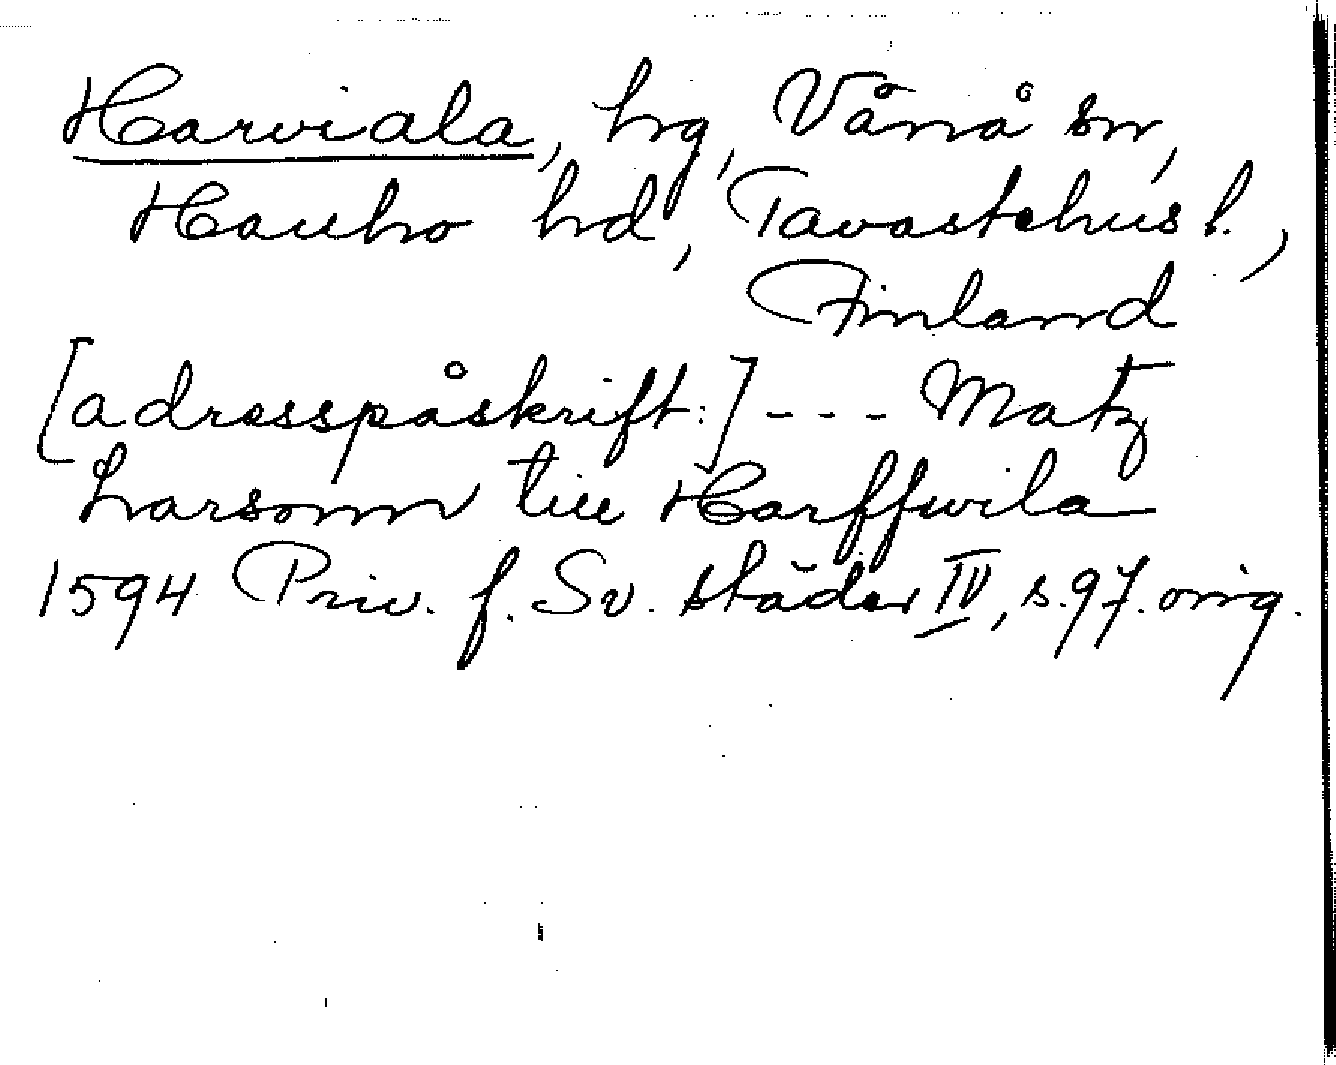 Harviala, hg, Vånå sn,
Hauho hd, Tavastehus l.,
Finland
[adresspåskrift:] --- Matz
Larsonn till Harffwila
1594 Priv. f. Sv. städer IV, s. 97. orig.